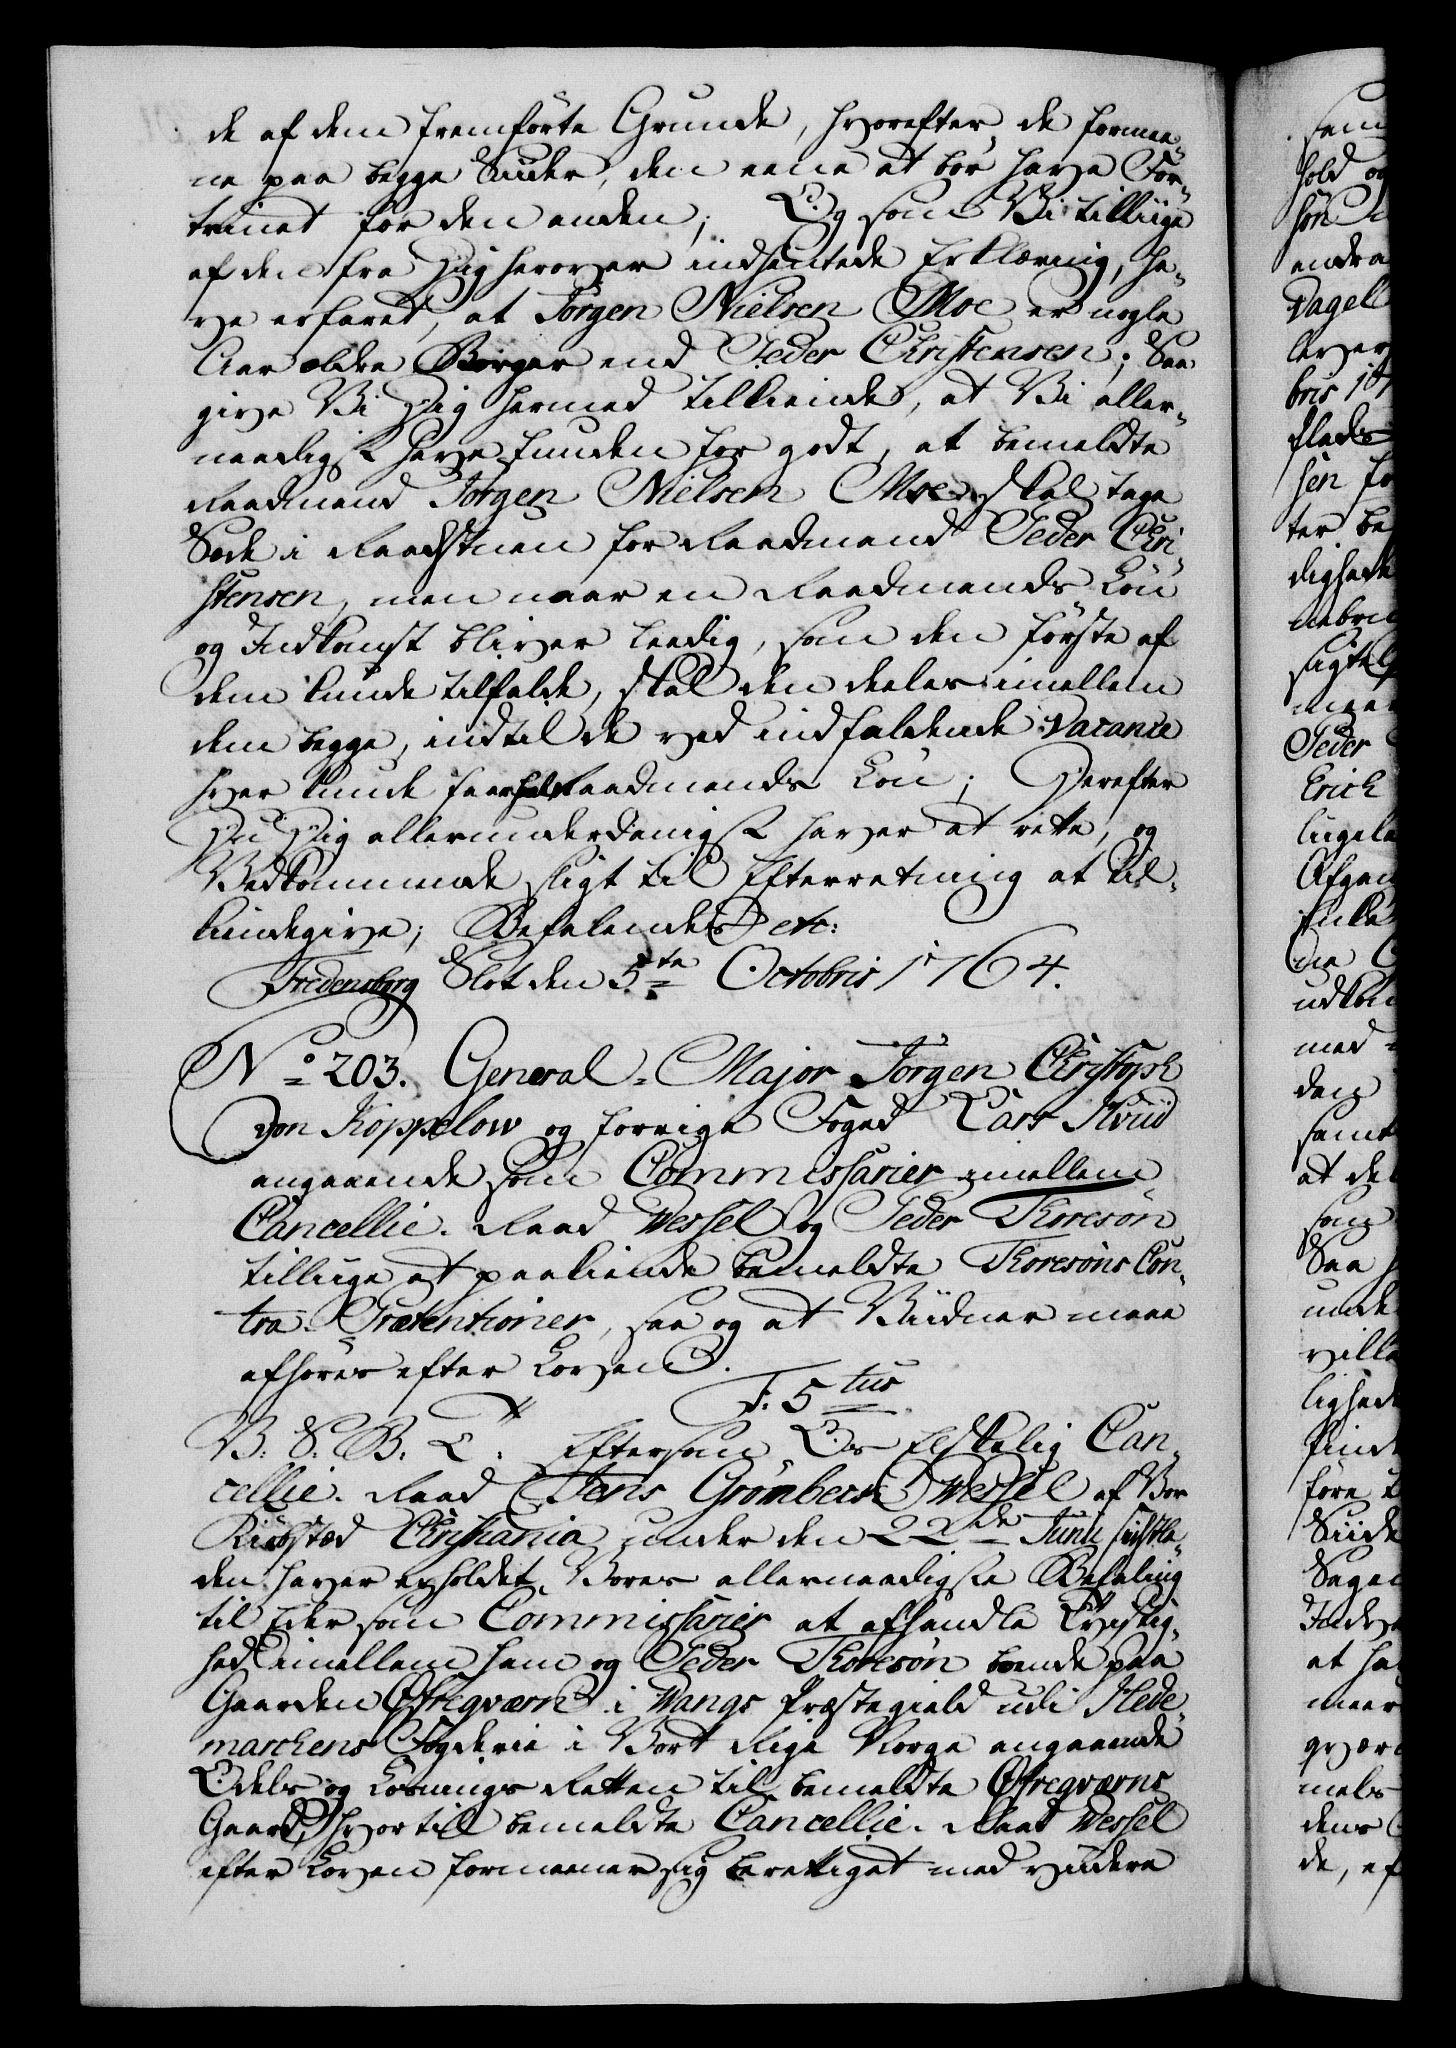 de af dem fremførte Grunde, hvorefter de formee-
ne paa begge Siider, den eene at bør have For-
trinet for den anden; Og som Vi tilliige
af den fra Dig herover indhentede Erklæring, ha-
ve erfaret, at Jørgen Nielsen Moe er nogle
Aar ældre Borger end Peder Christensen; Saa
give Vi Dig hermed tilkiende, at Vi aller-
naadigst have funden for godt, at bemeldte
Raadmand Jørgen Nielsen Moe skal tage
Sæde i Raadstuen for Raadmand Peder Chri-
stensen, men naar en Raadmands Løn
og Indkomst bliver leedig, som den første af
dem kunde tilfalde, skal den deeles imellem
dem begge, indtil de ved indfaldende Vacance
hver kunde faae heel Raadmands Løn; Derefter
Du Dig allerunderdanigst haver at rette, og
Vedkommende sligt til Efterretning at til-
kiendegive; Befalendes etc:
Fredensborg Slot den 5te Octobris 1764.
No 203. General-Major Jørgen Christoph
von Koppelow og forrige Foged Lars Hviid
angaaende som Commissarier imellem
Cancellie-Raad Wessel og Peder Thoresøn
tilliige at paakiende bemeldte Thoresøns Con-
tra-Prætentioner, saa og at Viidner maae
afhøres efter Loven.
F: 5tus
V: S: B: T: Eftersom Os Elskelig Can-
cellie-Raad Jens Grømbech Wessel af Vor
Kiøbstæd Christiania under den 22de Junii sidstle-
den haver erholdet Vores allernaadigste Befaling
til Eder som Commissarier at afhandle Tvistig-
hed imellem ham og Peder Thoresøn boende paa
Gaarden Østregværn i Wangs Præstegield udi Hede-
marckens Fogderie i Vort Rige Norge angaaende
Odels og Løsnings Retten til bemeldte Østregværns
Gaard, hvortil bemeldte Cancellie-Raad Wessel
efter Loven formeener sig berettiget med videre